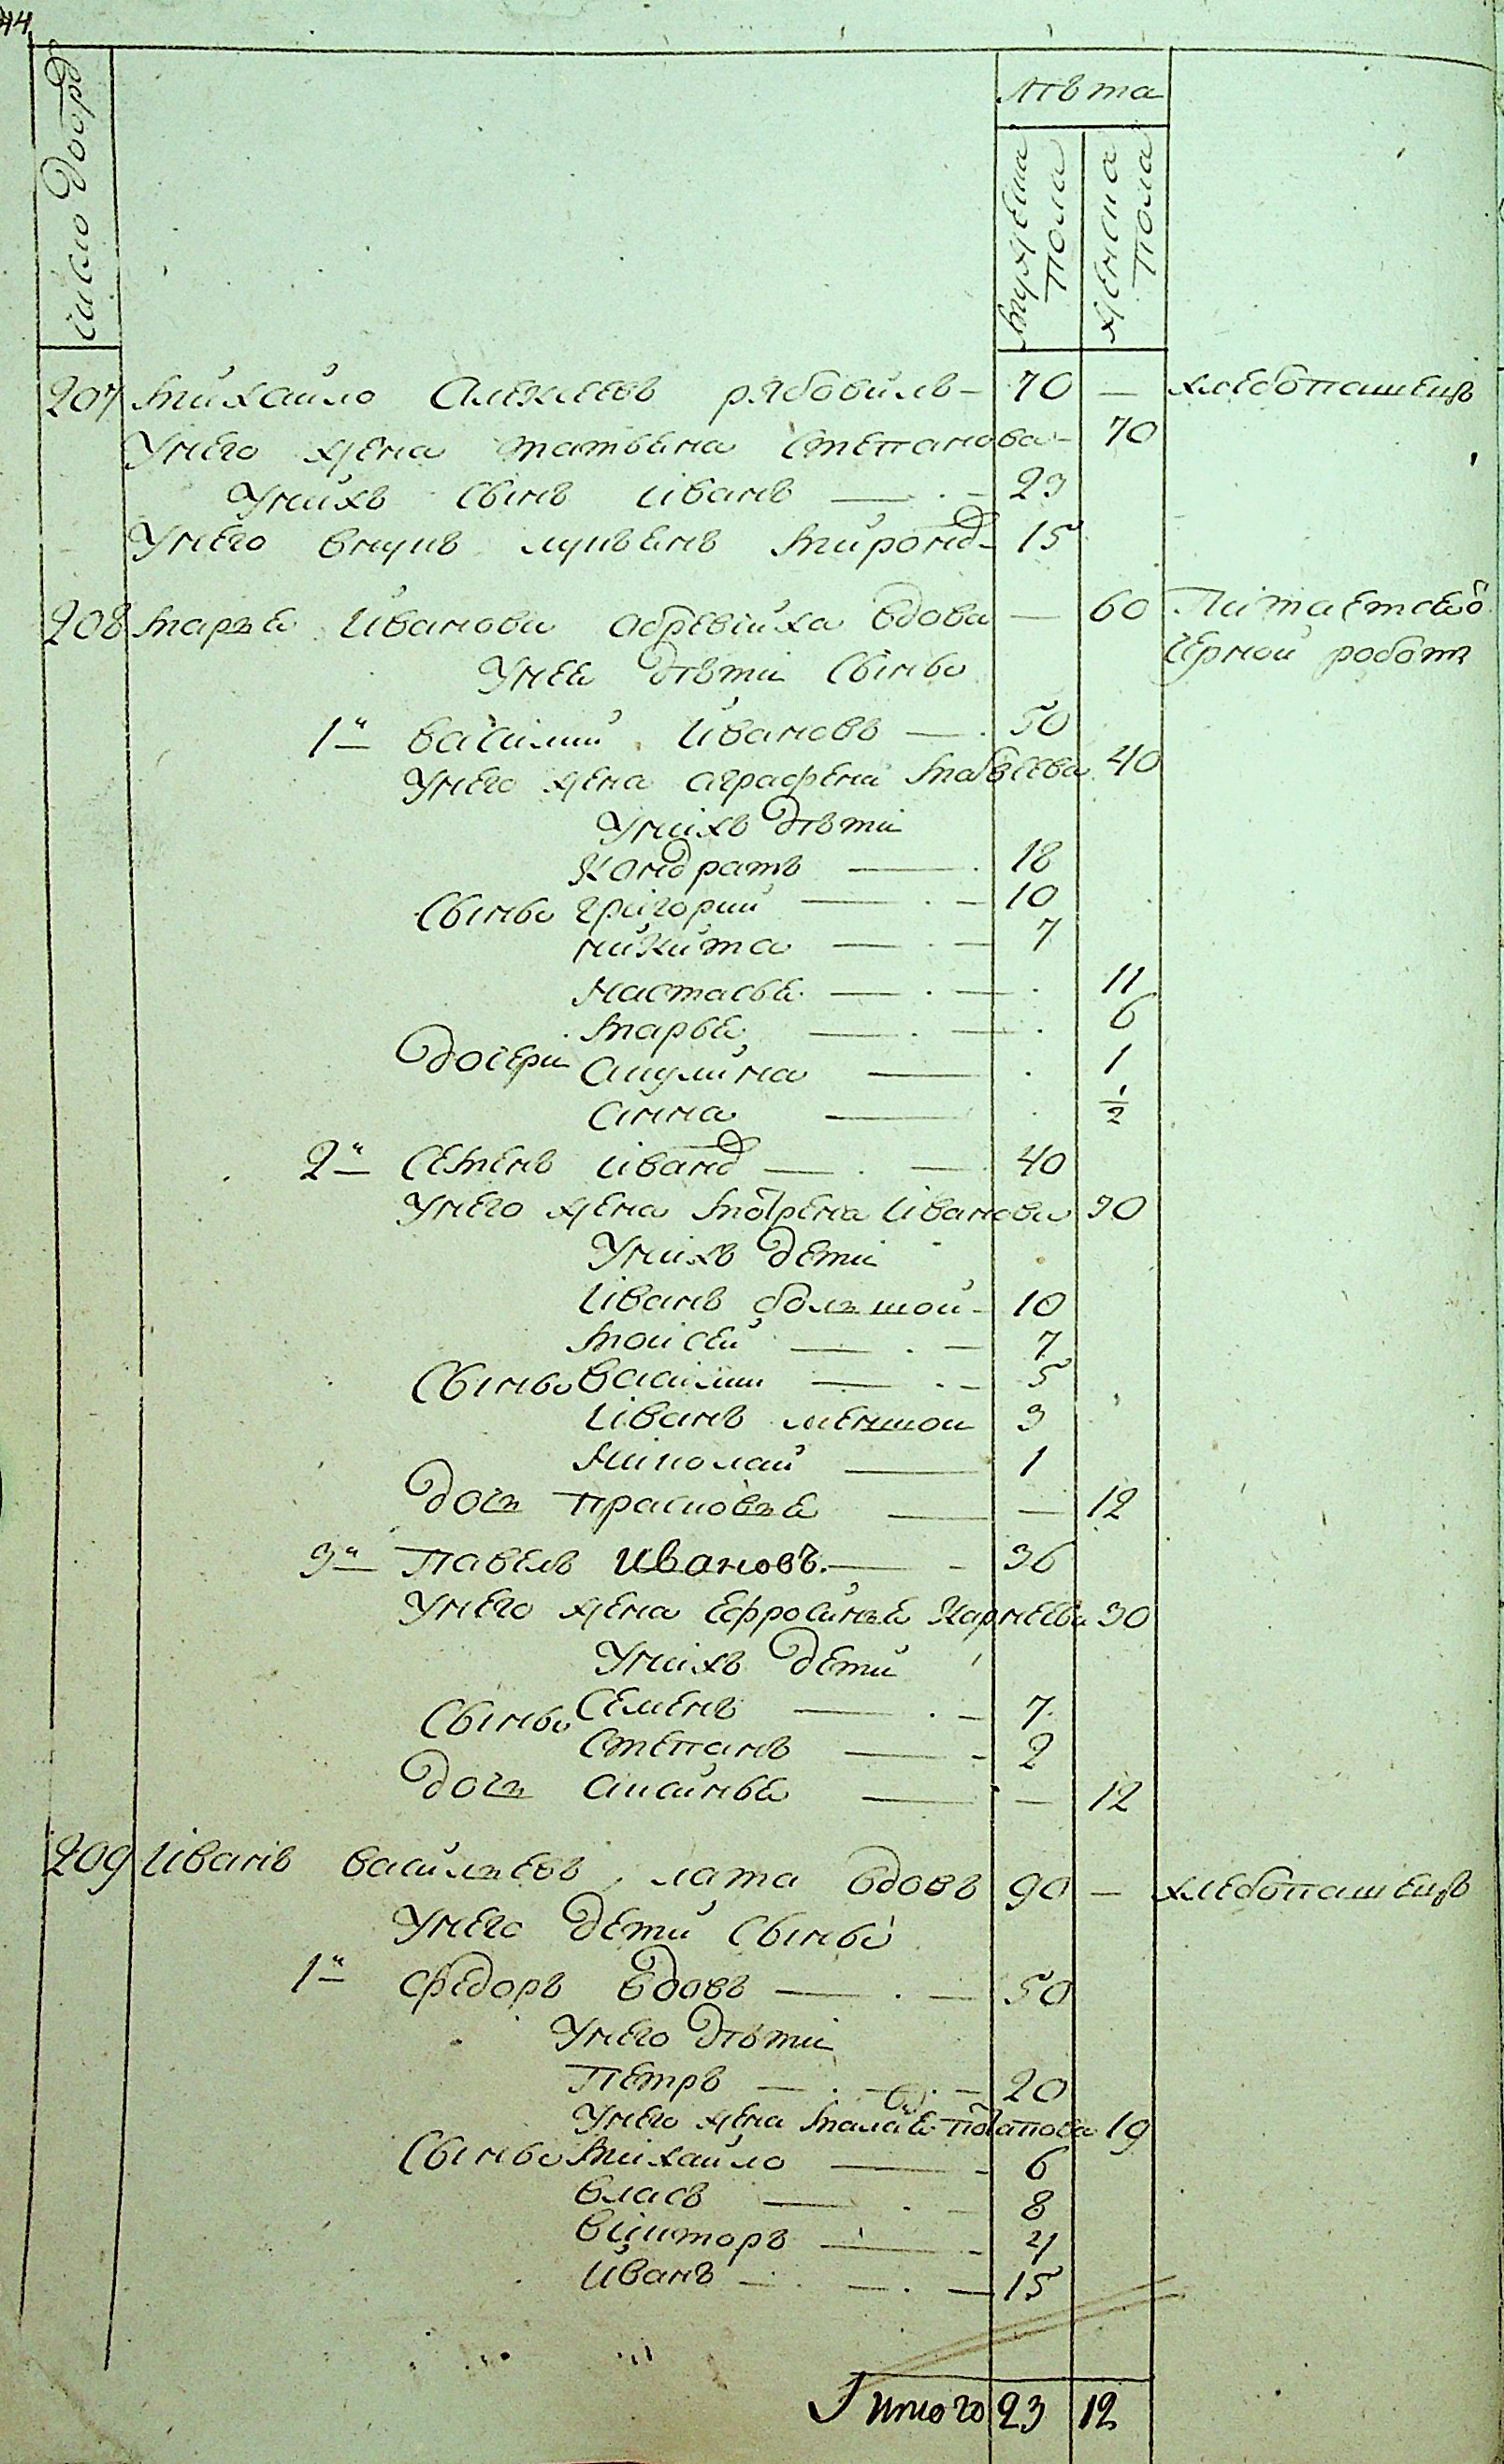 44
число дворо
лѣта
мужеска пола
женска пола
207 михайло Алексеевъ рябовилъ - 70 — хлебопашецъ
Унего жена татьяна степанова - 70
Унихъ сынъ иванъ — 23
Унего внукъ лукьянъ мирона - 15
208 марья Иванова вдова — 60 Питается
Унея дѣти сыны чернои работи
1й василии Ивановъ — 50
Унего жена аграфена мавсеева 40
Унихъ дѣти
Кондратъ — 18
сыны григории — 10
никита — 7
настасья — 11
марья — 6
дочери акулина — 1
анна — 1/2
2й семенъ иванов — 40
Унего жена мотрена иванова 30
Унихъ дети
иванъ большои - 10
моисеи — 7
сыны василии — 5
иванъ меншои 3
николаи — 1
дочь прасковья — 12
3й павелъ Ивановъ — 36
Унего жена ефросинья Карнеева 30
Унихъ дети
сыны семенъ — 7
степанъ — 2
дочь аксинья — 12
209 иванъ васильевъ лата вдовъ 90 — хлебопашецъ
Унего дети сыны
1й федоръ вдовъ — 50
Унего дѣти
петръ — 20
Унего жена маланья потапова 19
сыны михаило — 6
власъ — 8
викторъ — 4
Иванъ — 15
Итого 23 12